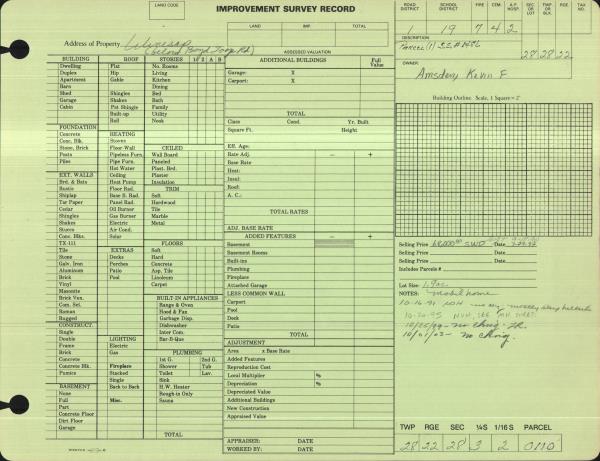 LAND CODE
IMPROVEMENT SURVEY RECORD
ROAD DISTRICT SCHOOL DISTRICT R.E. C.M. A.P. HOSP SEC OR LOT TWP OR BLK RGE TAX NO
1 19 7 4 2
LAND IMP. TOTAL
DESCRIPTION
Address of Property
ASSESSED VALUATION
28 28 22
BUILDING ROOF STORIES 1 2 A B
ADDITIONAL BUILDINGS Full Value
OWNER
Amsden, Kevin F
Dwelling Flat No. Rooms
Duplex Hip Living
Apartment Gable Kitchen
Barn Dining
Shed Shingles Bed
Garage Shakes Bath
Cabin Pat Shingle Family
Built-up Utility
Roll Nook
Garage: X
Carport: X
TOTAL
Building Outline Scale, 1 Square =
Class Cond. Yr. Built
Square Ft. Height
FOUNDATION
Concrete HEATING
Conc. Blk. Stoves
Stone, Brick Floor Wall CEILED
Posts Pipeless Furn. Wall Board
Piles Pipe Furn. Paneled
Hot Water Plast. Brd.
EXT. WALLS Ceiling Plaster
Brd. & Bats Heat Pump Insulation
Rustic Floor Rad. TRIM
Shiplap Base B. Rad. Soft
Tar Paper Panel Rad. Hardwood
Cedar Oil Burner Tile
Shingles Gas Burner Marble
Shakes Electric Metal
Stucco Air Cond.
Conc. Blks. Solar FLOORS
TX-111
Tile EXTRAS Soft
Stone Decks Hard
Galv. Iron Porches Concrete
Aluminum Patio Asp. Tile
Brick Pool Linoleum
Vinyl Carpet
Masonite
Brick Ven. BUILT-IN APPLIANCES
Com. Sel. Range & Oven
Roman Hood & Fan
Rugged Garbage Disp.
CONSTRUCT. Dishwasher
Single Inter Com.
Double LIGHTING Bar-B-Que
Frame Electric
Brick Gas PLUMBING
Concrete 1st G. 2nd G.
Concrete Blk. Fireplace Shower Tub
Pumice Stacked Toilet Lav.
Single Sink
BASEMENT Back to Back H.W. Hester
None Rough-in Only
Full Misc. Sauna
Part
Concrete Floor
Dirt Floor
Garage
TOTAL
Eff. Age:
Rate Adj. - +
Base Rate
Heat:
Insul:
Roof:
A. C.:
TOTAL RATES
ADJ. BASE RATE
ADDED FEATURES - +
Basement
Basement Rooms
Built-ins
Plumbing
Fireplace
Attached Garage
LESS COMMON WALL
Carport
Pool
Deck
Patio
TOTAL
ADJUSTMENT
Area x Base Rate
Added Features
Reproduction Cost
Local Multiplier %
Depreciation %
Depreciated Value
Additional Buildings
New Construction
Appraised Value
APPRAISER: DATE
WORKED BY: DATE
Selling Price 68,000.00 SWD Date
Selling Price Date
Includes Parcels #
Lot Size: 1.9 ac.
NOTES: Mobil home
TWP RGE SEC ¼S 1/16 S PARCEL
28 22 28 3 2 0110